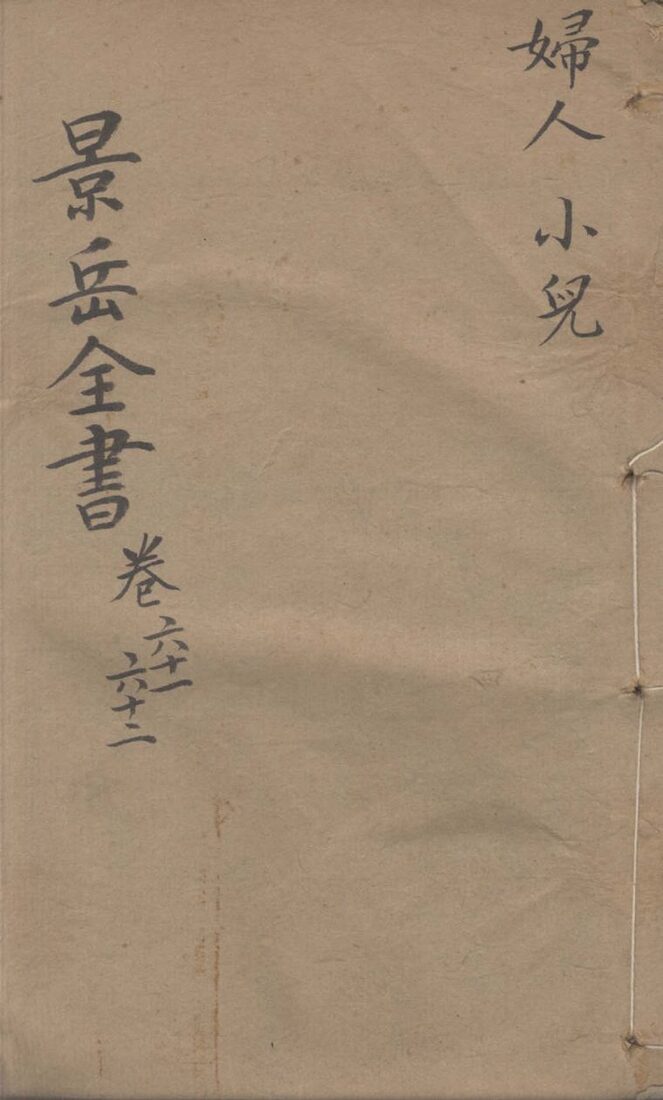 婦人 小兒
景岳全書
卷六十一
六十二